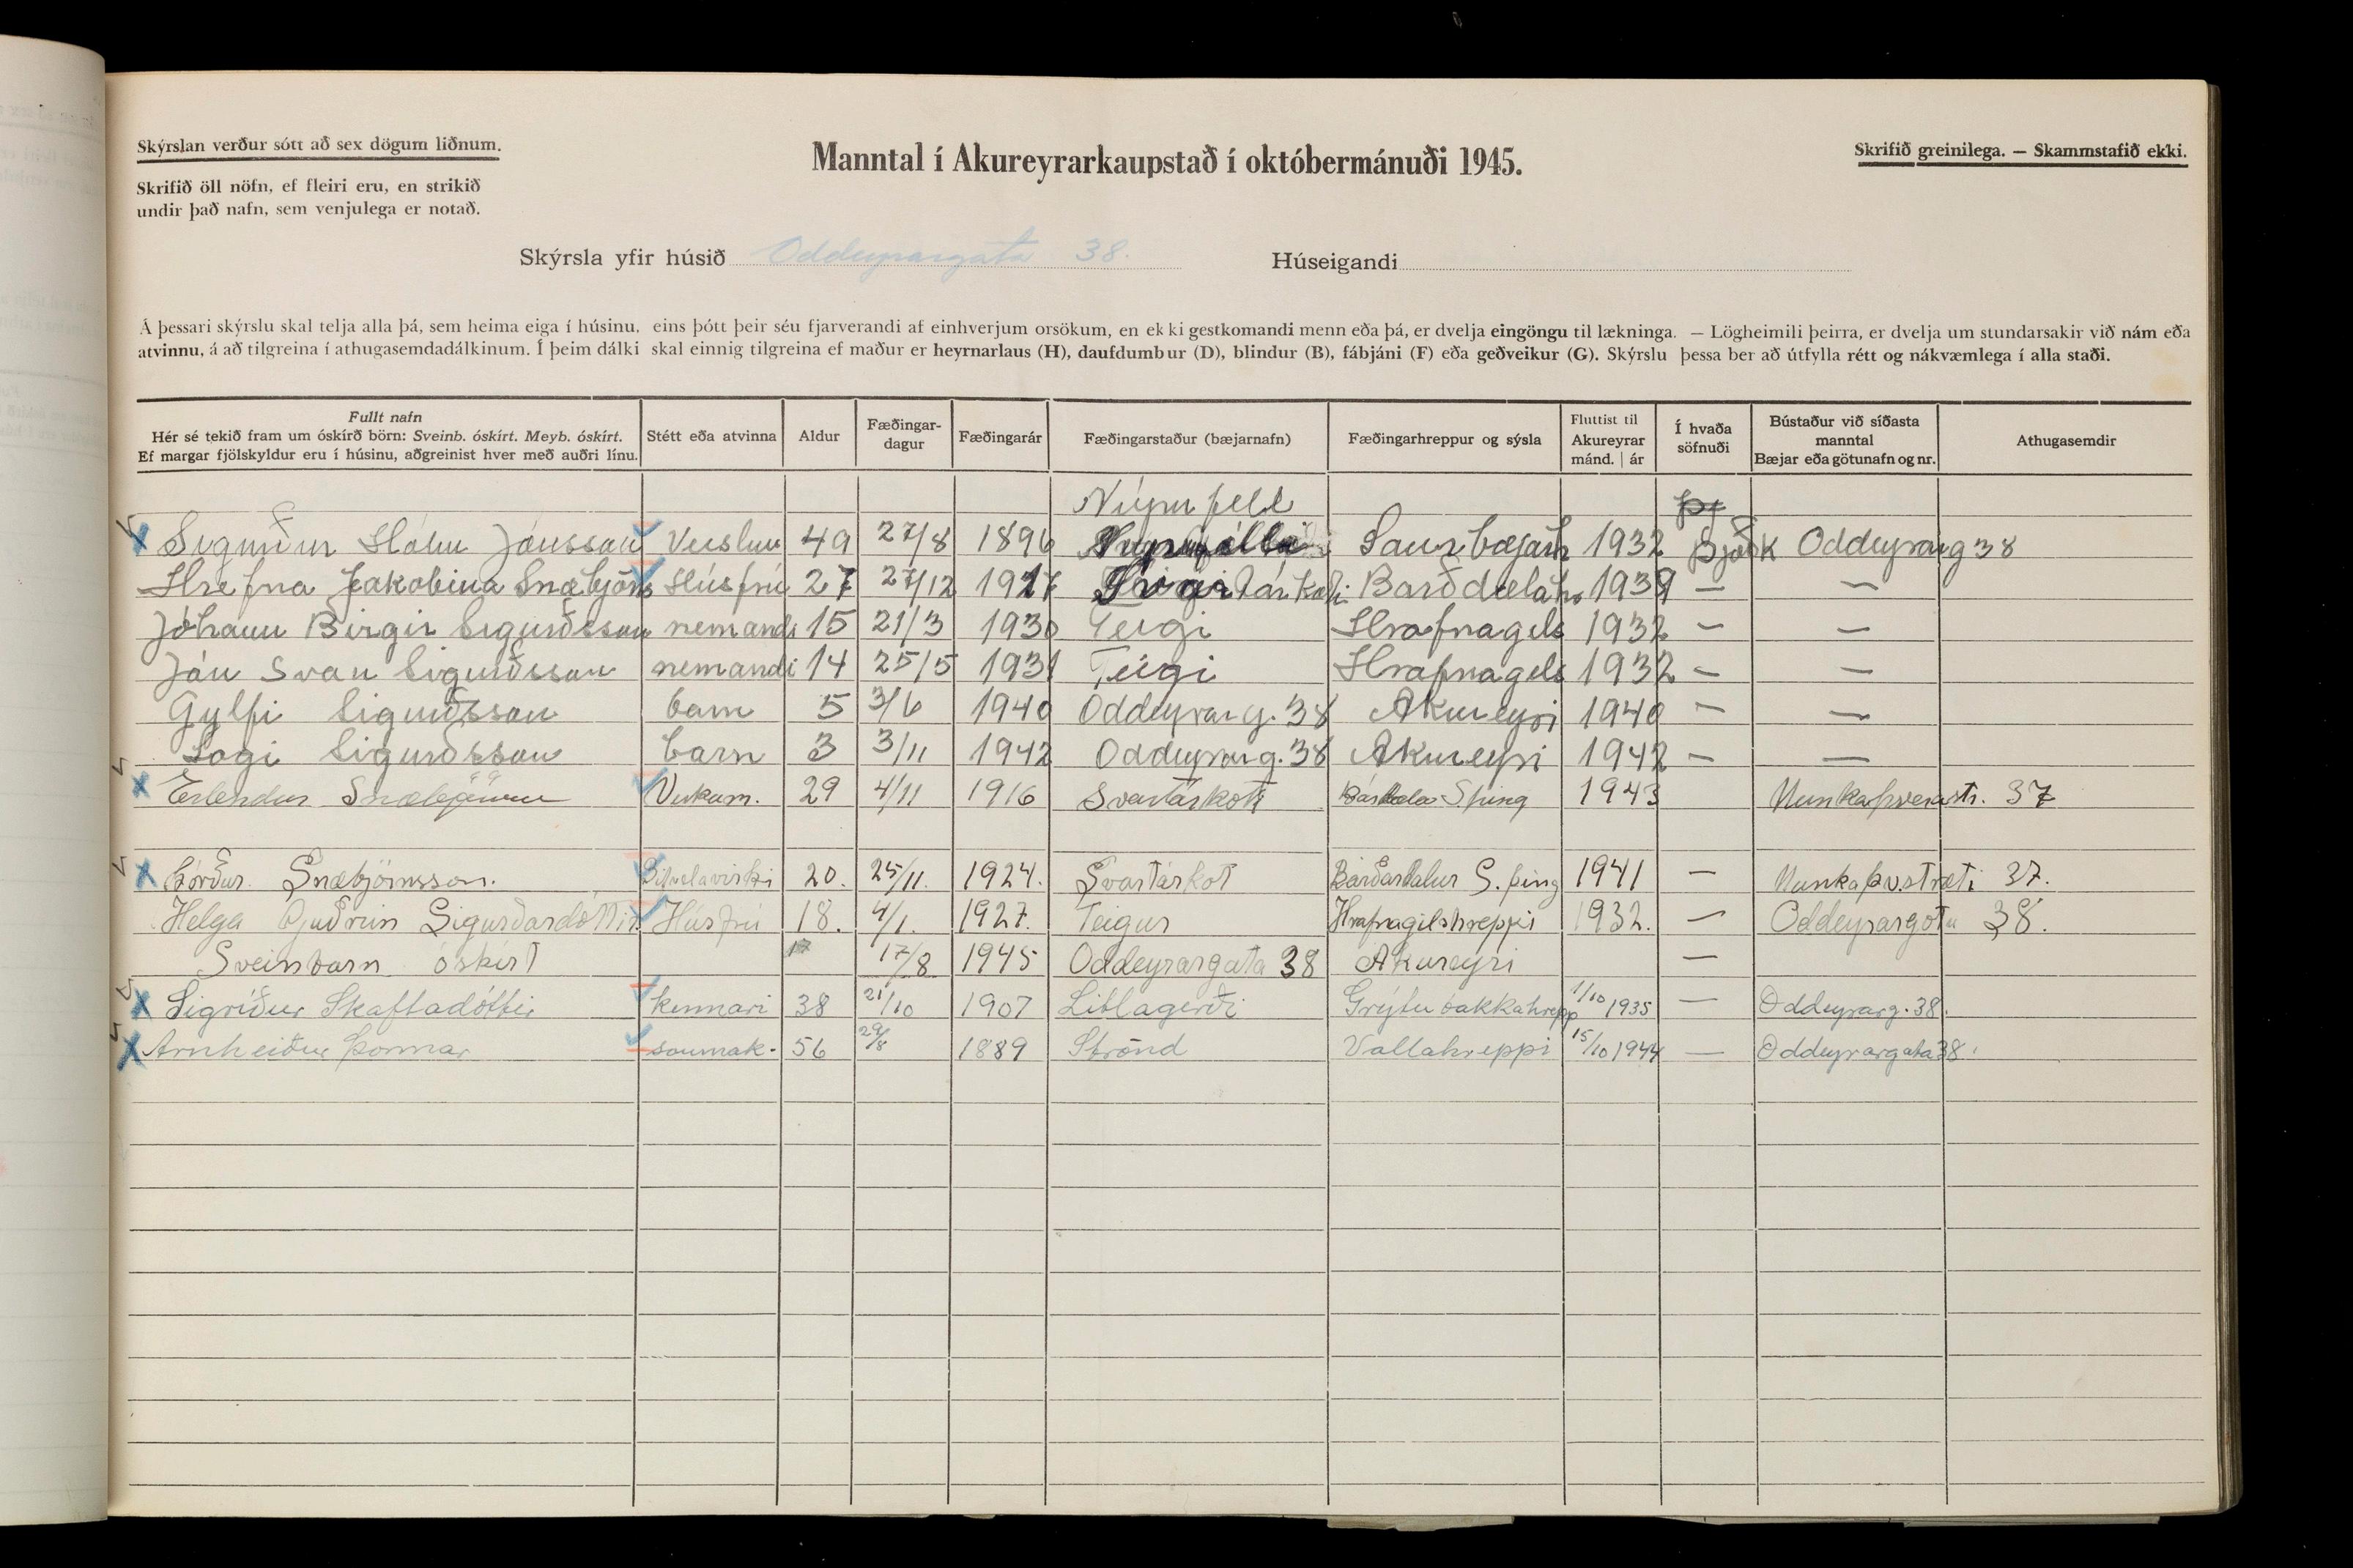 Skýrslan verður sótt að sex dögum liðnum.
Manntal í Akureyrarkaupstað í októbermánuði 1945.
Skrifið greinilega. — Skammstafið ekki.
Skrifið öll nöfn, ef fleiri eru, en strikið
undir það nafn, sem venjulega er notað.
Skýrsla yfir húsið Oddeyrargata 38. Húseigandi
Á þessari skýrslu skal telja alla þá, sem heima eiga í húsinu, eins þótt þeir séu fjarverandi af einhverjum orsökum, en ekki gestkomandi menn eða þá, er dvelja eingöngu til lækninga. — Lögheimili þeirra, er dvelja um stundarsakir við nám eða
atvinnu, á að tilgreina í athugasemdadálkinum. Í þeim dálki skal einnig tilgreina ef maður er heyrnarlaus (H), daufdumbur (D), blindur (B), fábjáni (F) eða geðveikur (G). Skýrslu þessa ber að útfylla rétt og nákvæmlega í alla staði.
Fullt nafn
Hér sé tekið fram um óskírð börn: Sveinb. óskírt. Meyb. óskírt.
Ef margar fjölskyldur eru í húsinu, aðgreinist hver með auðri línu.
Stétt eða atvinna
Aldur
Fæðingar-
dagur
Fæðingarár
Fæðingarstaður (bæjarnafn)
Fæðingarhreppur og sýsla
Fluttist til
Akureyrar
mánd. | ár
Í hvaða
söfnuði
Bústaður við síðasta
manntal
Bæjar eða götunafn og nr.
Athugasemdir
Sigurður Hólm Jónsson 49 27/8 1896 Saurbæjarh 1932 Þjóðk Oddeyrarg 38
Hrefna Jakobína Snæbjörns Húsfrú 27 27/12 1917 Barðdælahr 1939 — —
Jóhann Birgir Sigurðsson nemandi 15 21/3 1930 Teigi Hrafnagels 1932 — —
Jón Svan Sigurðsson nemandi 14 25/5 1931 Teigi Hrafnagels 1932 — —
Gylfi Sigurðsson barn 5 3/6 1940 Oddeyrarg. 38 Akureyri 1940 — —
Logi Sigurðsson barn 3 3/11 1942 Oddeyrarg. 38 Akureyri 1942 — —
Erlendur Verkam. 29 4/11 1916 Svartárkoti S þing 1943 Munkaþverastr. 37
Hörður Snæbjörnsson. Bifvélavirki 20. 25/11. 1924. Svartárkot Bárðardalur S. þing 1941 — Munkaþv.stræti 37.
Helga Guðrún Sigurðardóttir Húsfrú 18. 4/1. 1927. Teigur Hrafnagilshreppi 1932. — Oddeyrargötu 38.
Sveinbarn óskírt 17/8 1945 Oddeyrargata 38 Akureyri —
Sigríður Skaftadóttir kennari 38 21/10 1907 Litlagerði Grýtubakkahrepp 1/10 1935 — Oddeyrarg. 38.
Arnheiður Þormar saumak. 56 29/8 1889 Strönd Vallahreppi 15/10 1944 — Oddeyrargata 38.